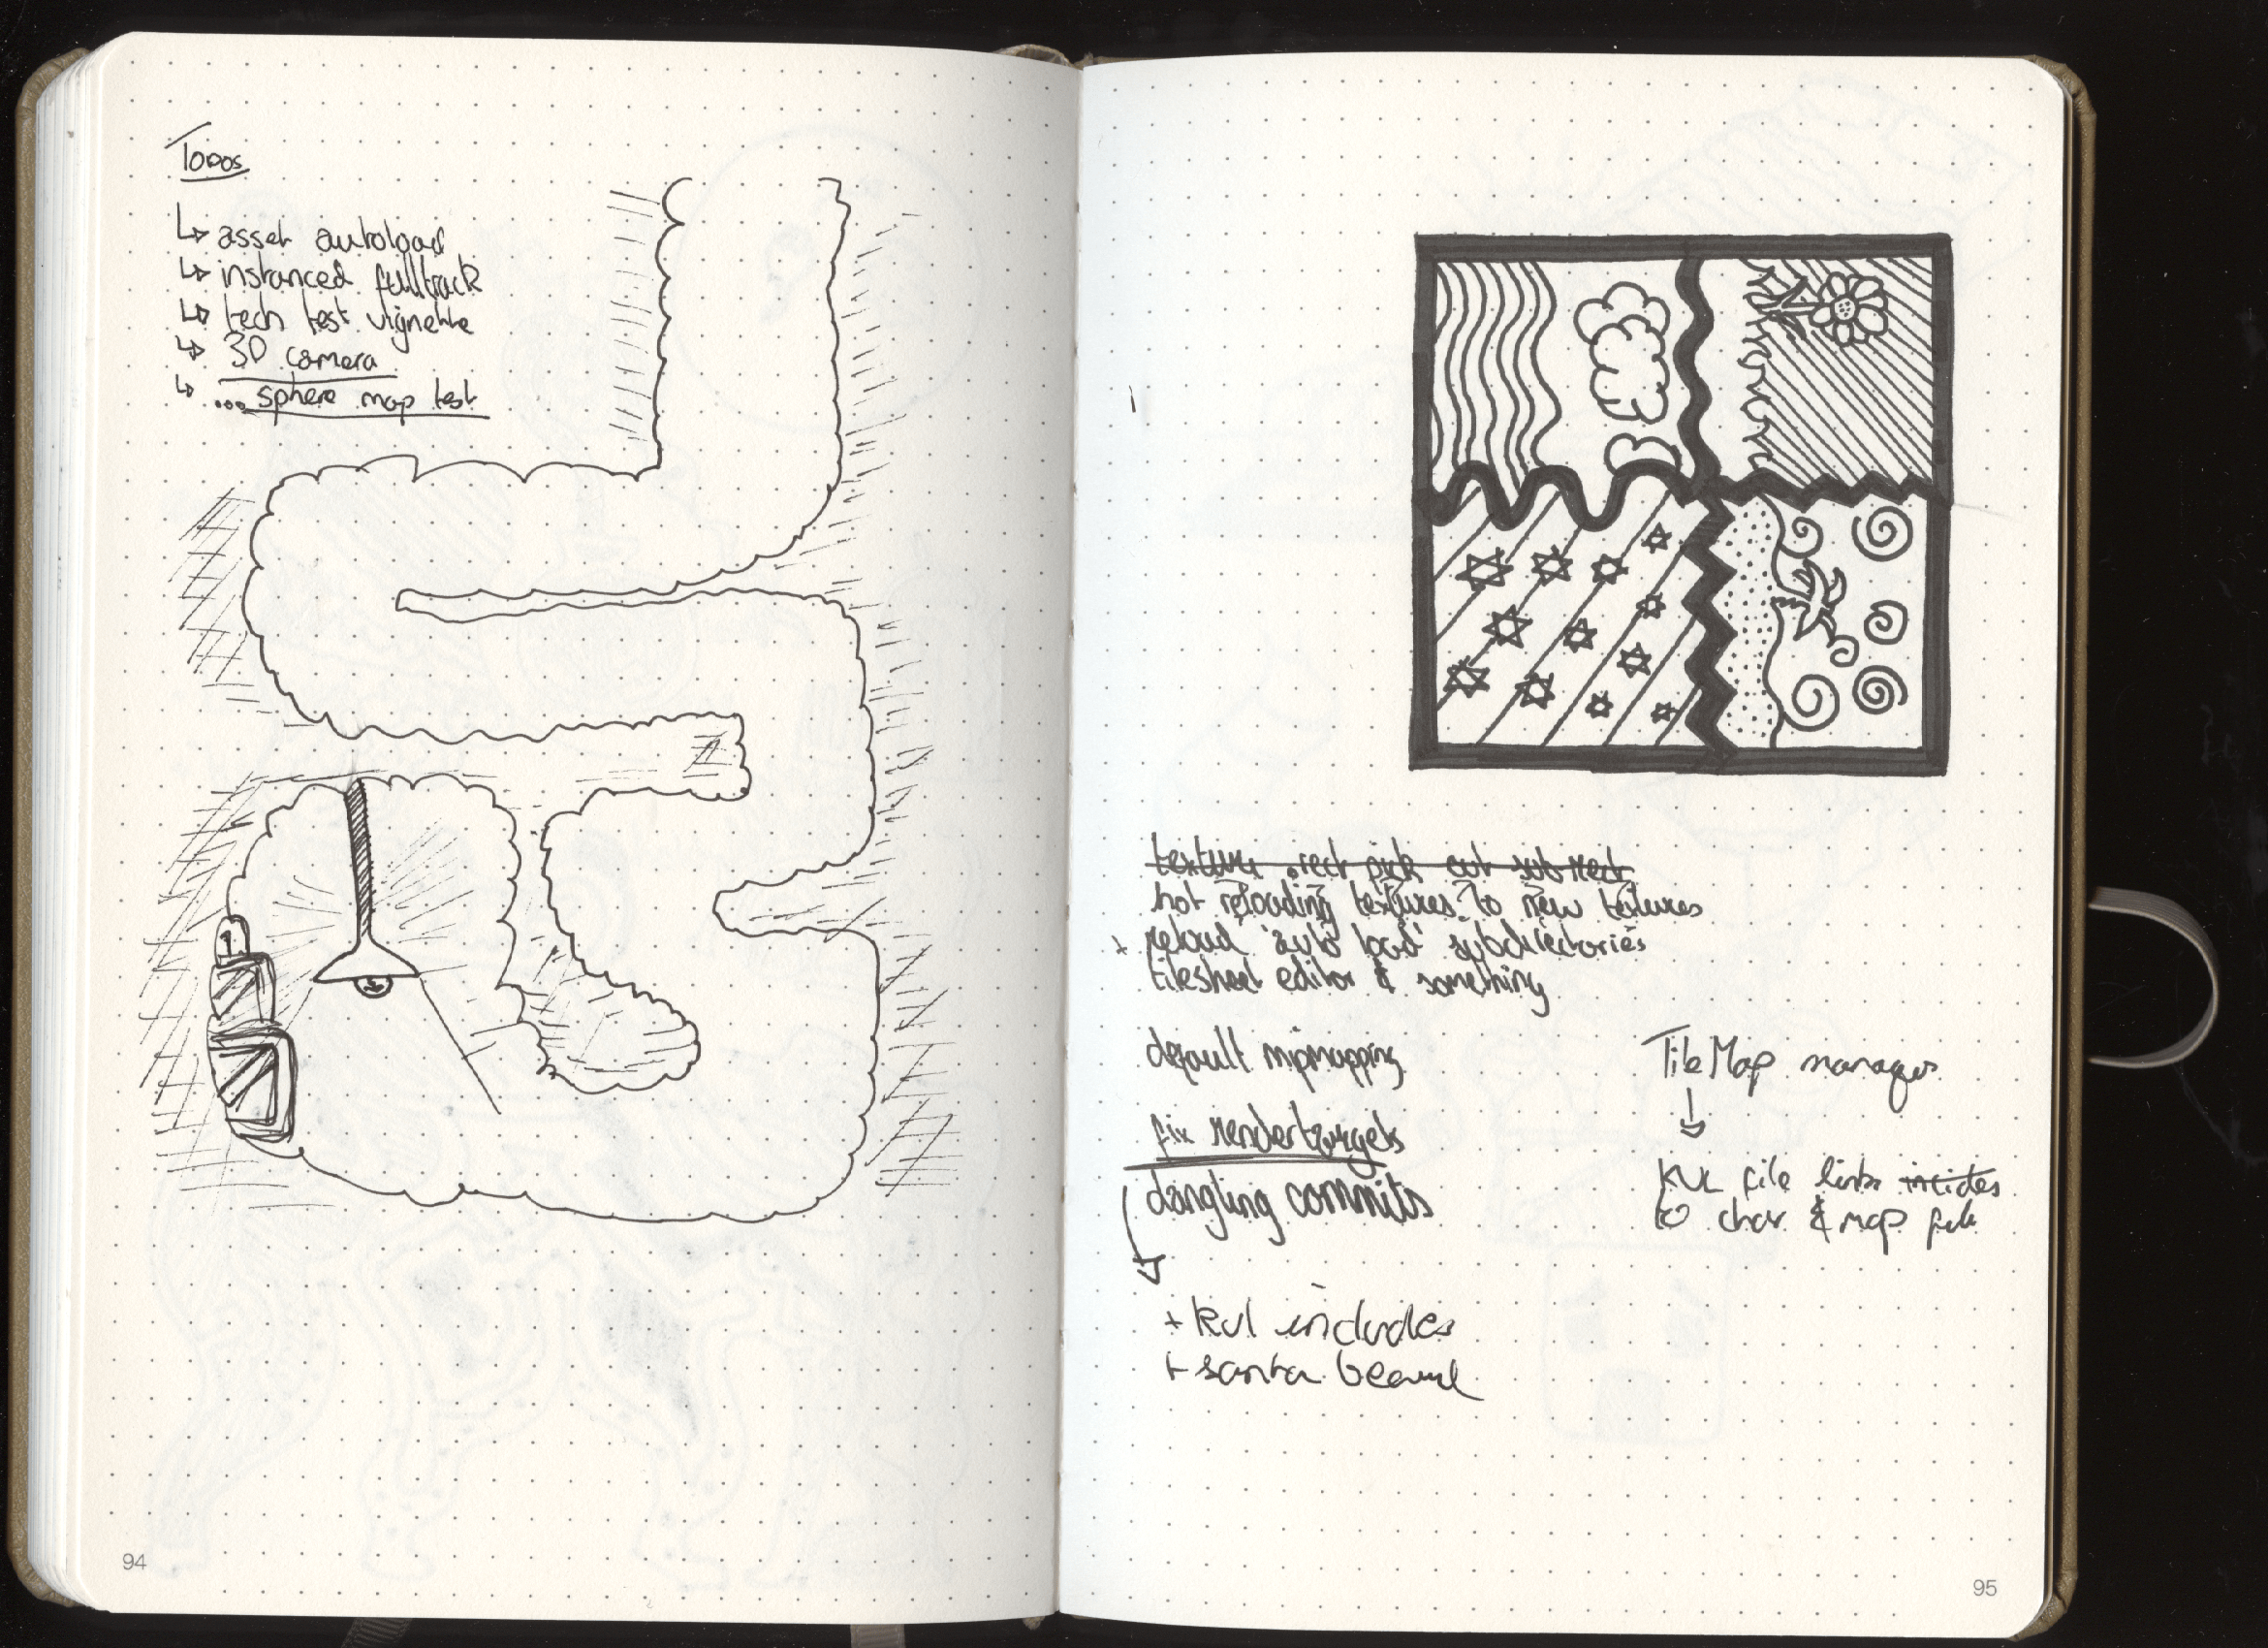 Todos
↳ asset autoload
↳ instanced fulltrack
↳ tech test vignette
↳ 3D camera
↳ ... sphere map test
94
texture rect pick out sub rect
hot reloading textures to new textures
+ reload 'auto load' subdirectories
tilesheet editor & something
default mipmapping
fix rendertargets
dangling commits
+ kvl includes
+ santa
TileMap manager
↓
KVL file links
to char & map file
95